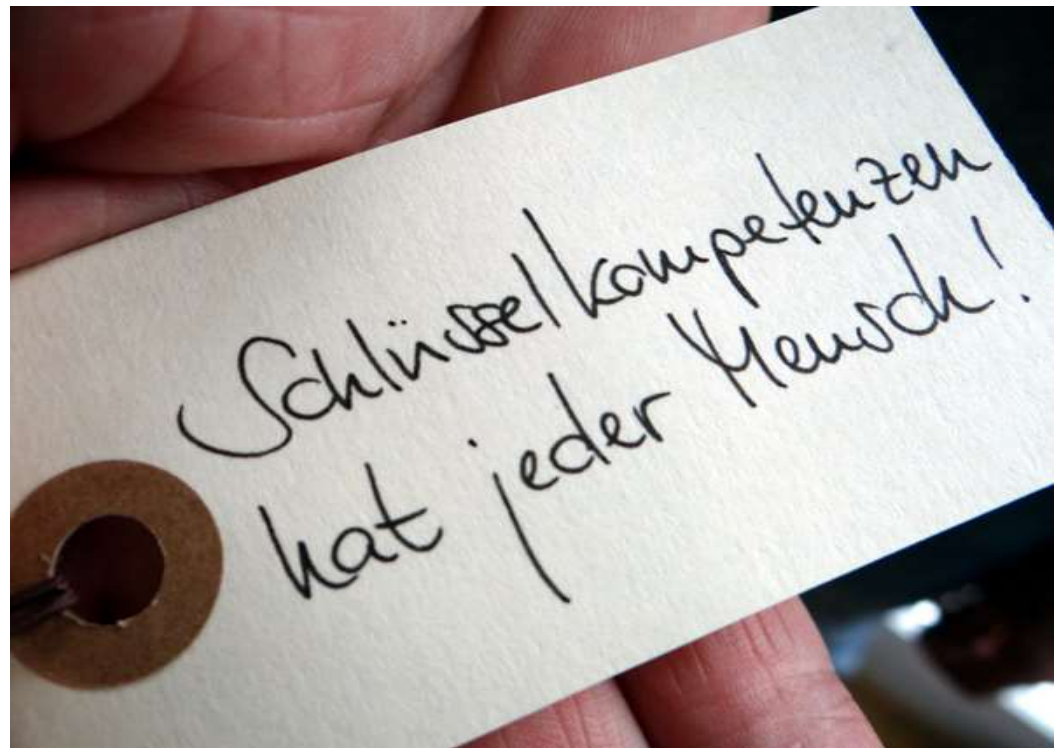 Schlüsselkompetenzen
hat jeder Mensch!